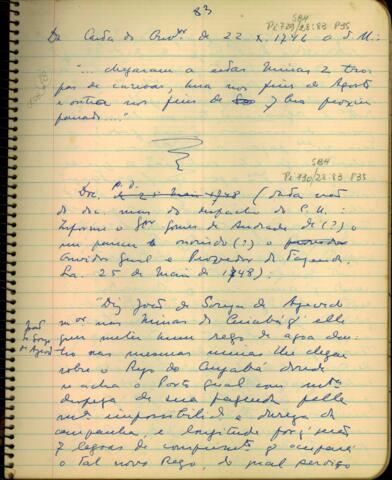 83
SBH
Pi 729/28:83 P35
De Carta do Ouvor de 22 X. 1746 a S. M.:
"... chegaram a estas Minas 2 tro-
pas de cavalos, hua nos fins de Agosto
e outra nos fins de 7bro proximo
passado..."
SBH
Pi 730/28:83 P35
Doc. 1748 (data
do doc. mas do despacho do C. U.:
Informe o Gor Gomes de Andrade (?) o
seu parecer ouvindo (?) o
Ouvidor geral e Provedor da Fazenda.
Lxa. 25 de Maio de 1748):
João
de Souza
de Azevedo
"Diz João de Souza de Azevedo
mor nas Minas do Cuiabá q elle
quer meter hum rego de agoa den-
tro nas mesmas minas the chegar
sobre o Rego do Cuyabá donde
se acha o Porto geral com mta
despeza de sua fazenda pella
impossibilid e dureza da
campanha, e longitude porq
7 legoas de comprimto q ocupará
o tal novo Rego, do qual serviço